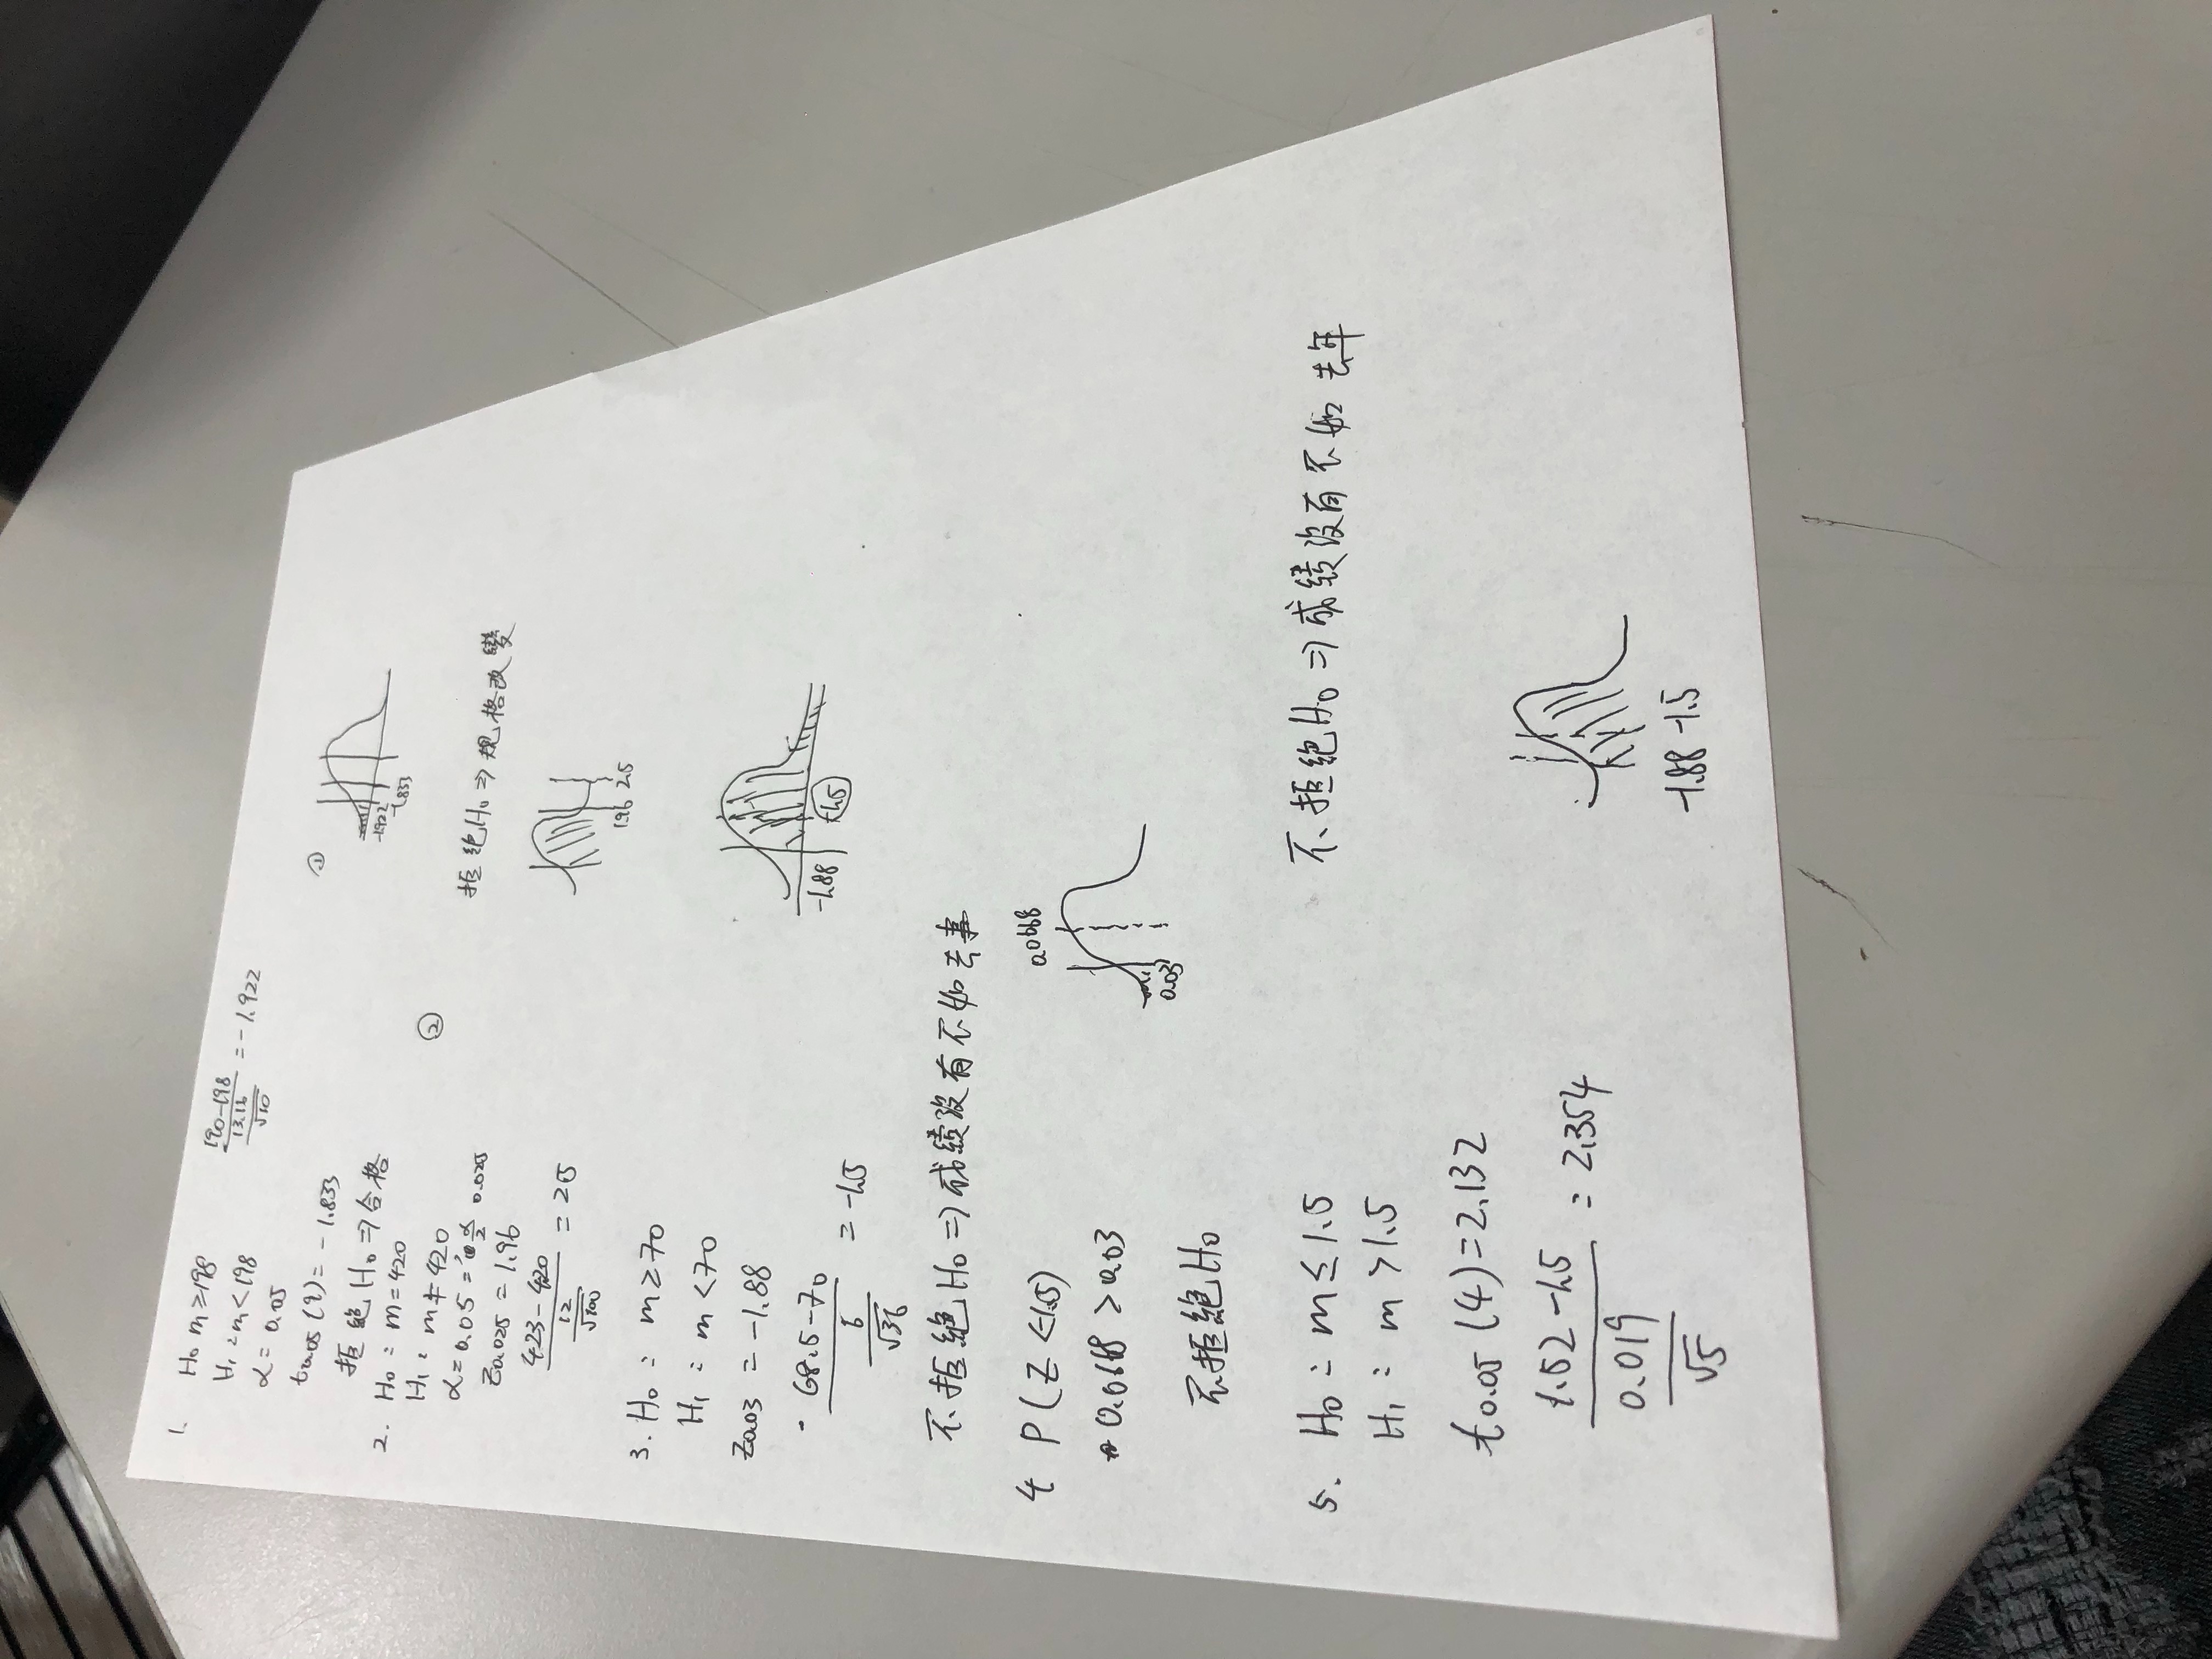 1. H₀ m≥198
H₁ : m<198
α = 0.05
t₀.₀₅ (9) = -1.833
拒絕 H₀ ⇒ 合格
190-198 / (13.16/√10) = -1.922
①
-1.922
-1.833
2. H₀ : m = 420
H₁ : m ≠ 420
α = 0.05 = α/2 0.025
Z₀.₀₂₅ = 1.96
423-420 / (12/√100) = 2.5
②
拒絕 H₀ ⇒ 規格改變
1.96 2.5
3. H₀ : m ≥ 70
H₁ : m < 70
Z₀.₀₃ = -1.88
68.5-70 / (6/√36) = -1.5
-1.88 -1.5
不拒絕 H₀ ⇒ 成績沒有不如去
4 P(Z <-1.5)
0.0668 > 0.03
不拒絕 H₀
0.0668
0.03
5. H₀ : m ≤ 1.5
H₁ : m > 1.5
t₀.₀₅ (4) = 2.132
1.52-1.5 / (0.019/√5) = 2.354
不拒絕 H₀ ⇒ 成績沒有不如去年
-1.88 -1.5